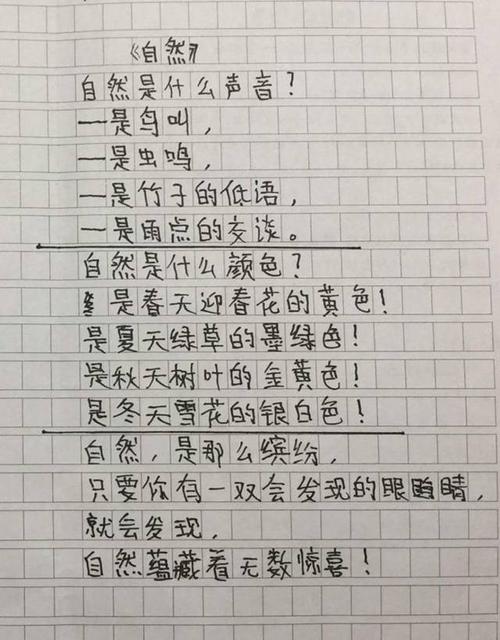 《自然》
自然是什么声音?
一是鸟叫,
一是虫鸣,
一是竹子的低语,
一是雨点的交谈。
自然是什么颜色?
是春天迎春花的黄色!
是夏天绿草的墨绿色!
是秋天树叶的金黄色!
是冬天雪花的银白色!
自然,是那么缤纷,
只要你有一双会发现的眼睛,
就会发现,
自然蕴藏着无数惊喜!